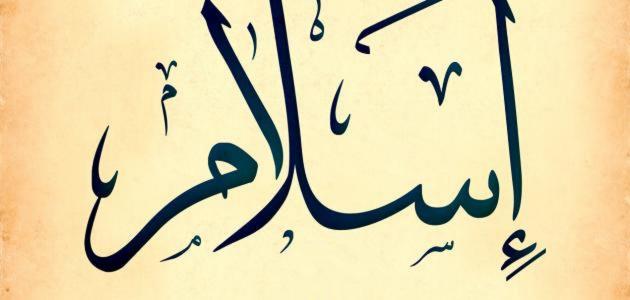 إسلام